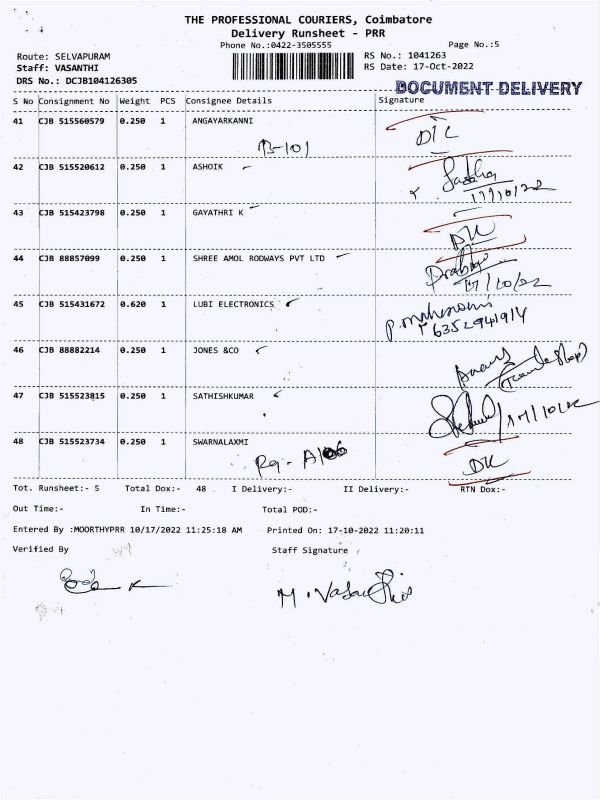 THE PROFESSIONAL COURIERS, Coimbatore
Delivery Runsheet - PRR
Phone No.:0422-3505555
Page No.:5
Route: SELVAPURAM
RS No.: 1041263
Staff: VASANTHI
RS Date: 17-Oct-2022
DRS No.: DCJB104126305
DOCUMENT DELIVERY
S No Consignment No Weight PCS Consignee Details Signature
41 CJB 515560579 0.250 1 ANGAYARKANNI
B-101
42 CJB 515520612 0.250 1 ASHOIK
17/10/22
43 CJB 515423798 0.250 1 GAYATHRI K
44 CJB 88857099 0.250 1 SHREE AMOL RODWAYS PVT LTD
17/10/22
45 CJB 515431672 0.620 1 LUBI ELECTRONICS
6352941914
46 CJB 88882214 0.250 1 JONES &CO
47 CJB 515523815 0.250 1 SATHISHKUMAR
17/10/22
48 CJB 515523734 0.250 1 SWARNALAXMI
DK
Tot. Runsheet:- 5 Total Dox:- 48 I Delivery:- II Delivery:- RTN Dox:-
Out Time:- In Time:- Total POD:-
Entered By :MOORTHYPRR 10/17/2022 11:25:18 AM Printed On: 17-10-2022 11:20:11
Verified By Staff Signature
M. Vasanthi